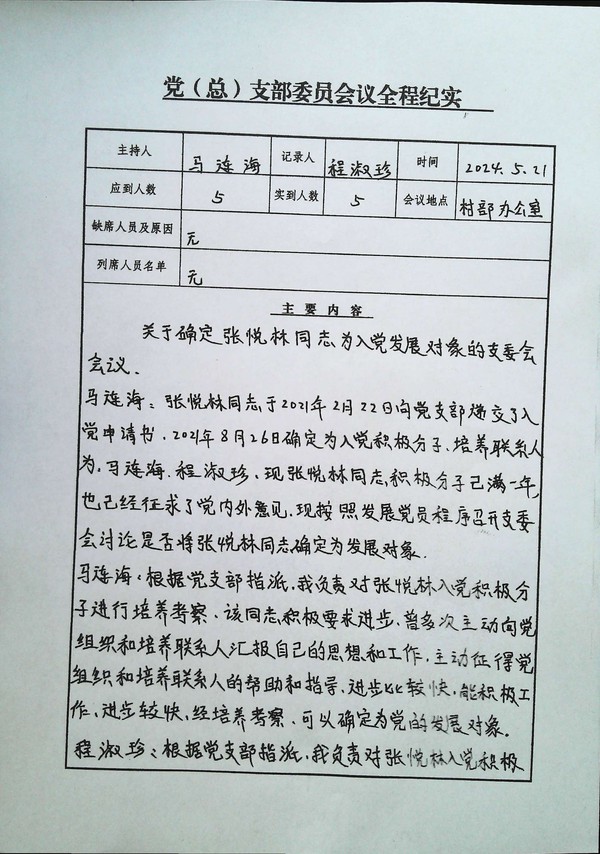 党（总）支部委员会议全程纪实
主持人 马连海 记录人 程淑珍 时间 2024.5.21
应到人数 5 实到人数 5 会议地点 村部办公室
缺席人员及原因 无
列席人员名单 无
主要内容
关于确定张悦林同志为入党发展对象的支委会
会议.
马连海：张悦林同志于2021年2月22日向党支部递交了入
党申请书.2021年8月26日确定为入党积极分子、培养联系人
为.马连海.程淑珍.现张悦林同志积极分子已满一年,
也已经征求了党内外意见.现按照发展党员程序召开支委
会讨论是否将张悦林同志确定为发展对象.
马连海：根据党支部指派.我负责对张悦林入党积极分
子进行培养考察、该同志积极要求进步、曾多次主动向党
组织和培养联系人汇报自己的思想和工作.主动征得党
组织和培养联系人的帮助和指导.进步比较快.能积极工
作、进步较快.经培养考察.可以确定为党的发展对象。
程淑珍：根据党支部指派.我负责对张悦林入党积极